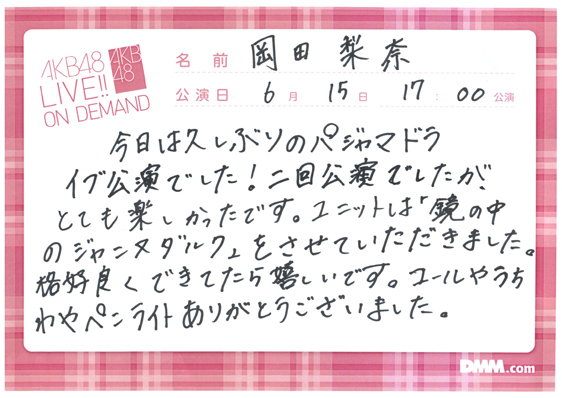 AKB48
LIVE!!
ON DEMAND
AKB
48
名前 岡田梨奈
公演日 6月 15日 17:00 公演
今日は久しぶりのパジャマドラ
イブ公演でした！二回公演でしたが、
とても楽しかったです。ユニットは「鏡の中
のジャンヌダルク」をさせていただきました。
格好良くできてたら嬉しいです。コールやうち
わやペンライトありがとうございました。
DMM.com